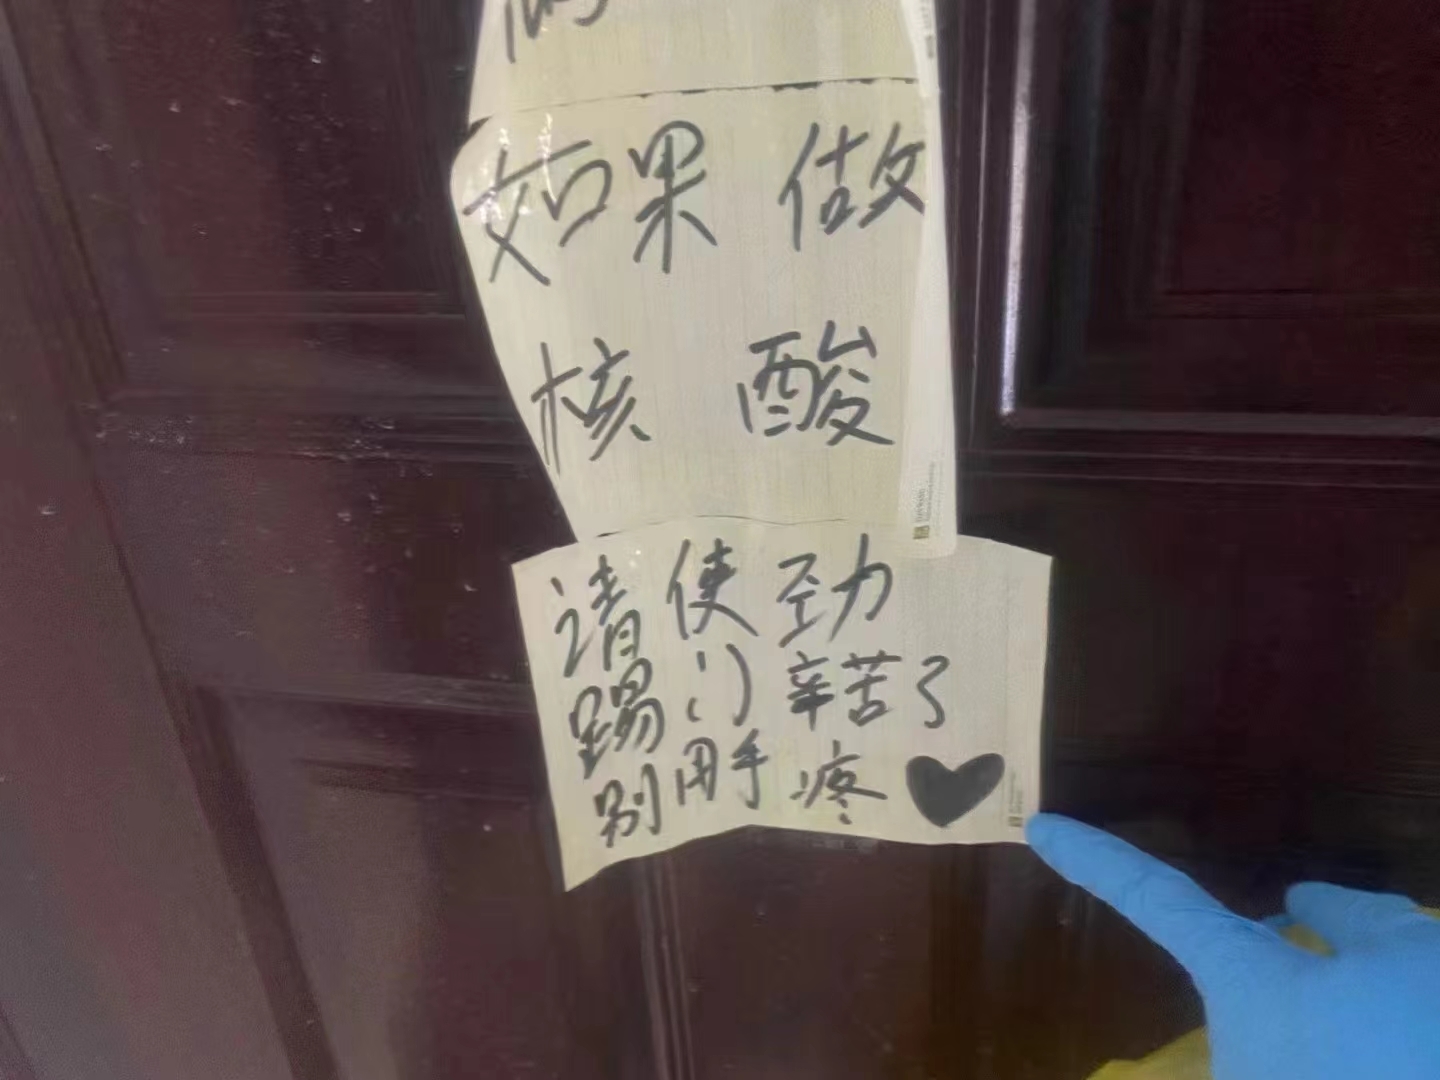 如果做
核酸
请使劲
踢门辛苦了
别用手疼